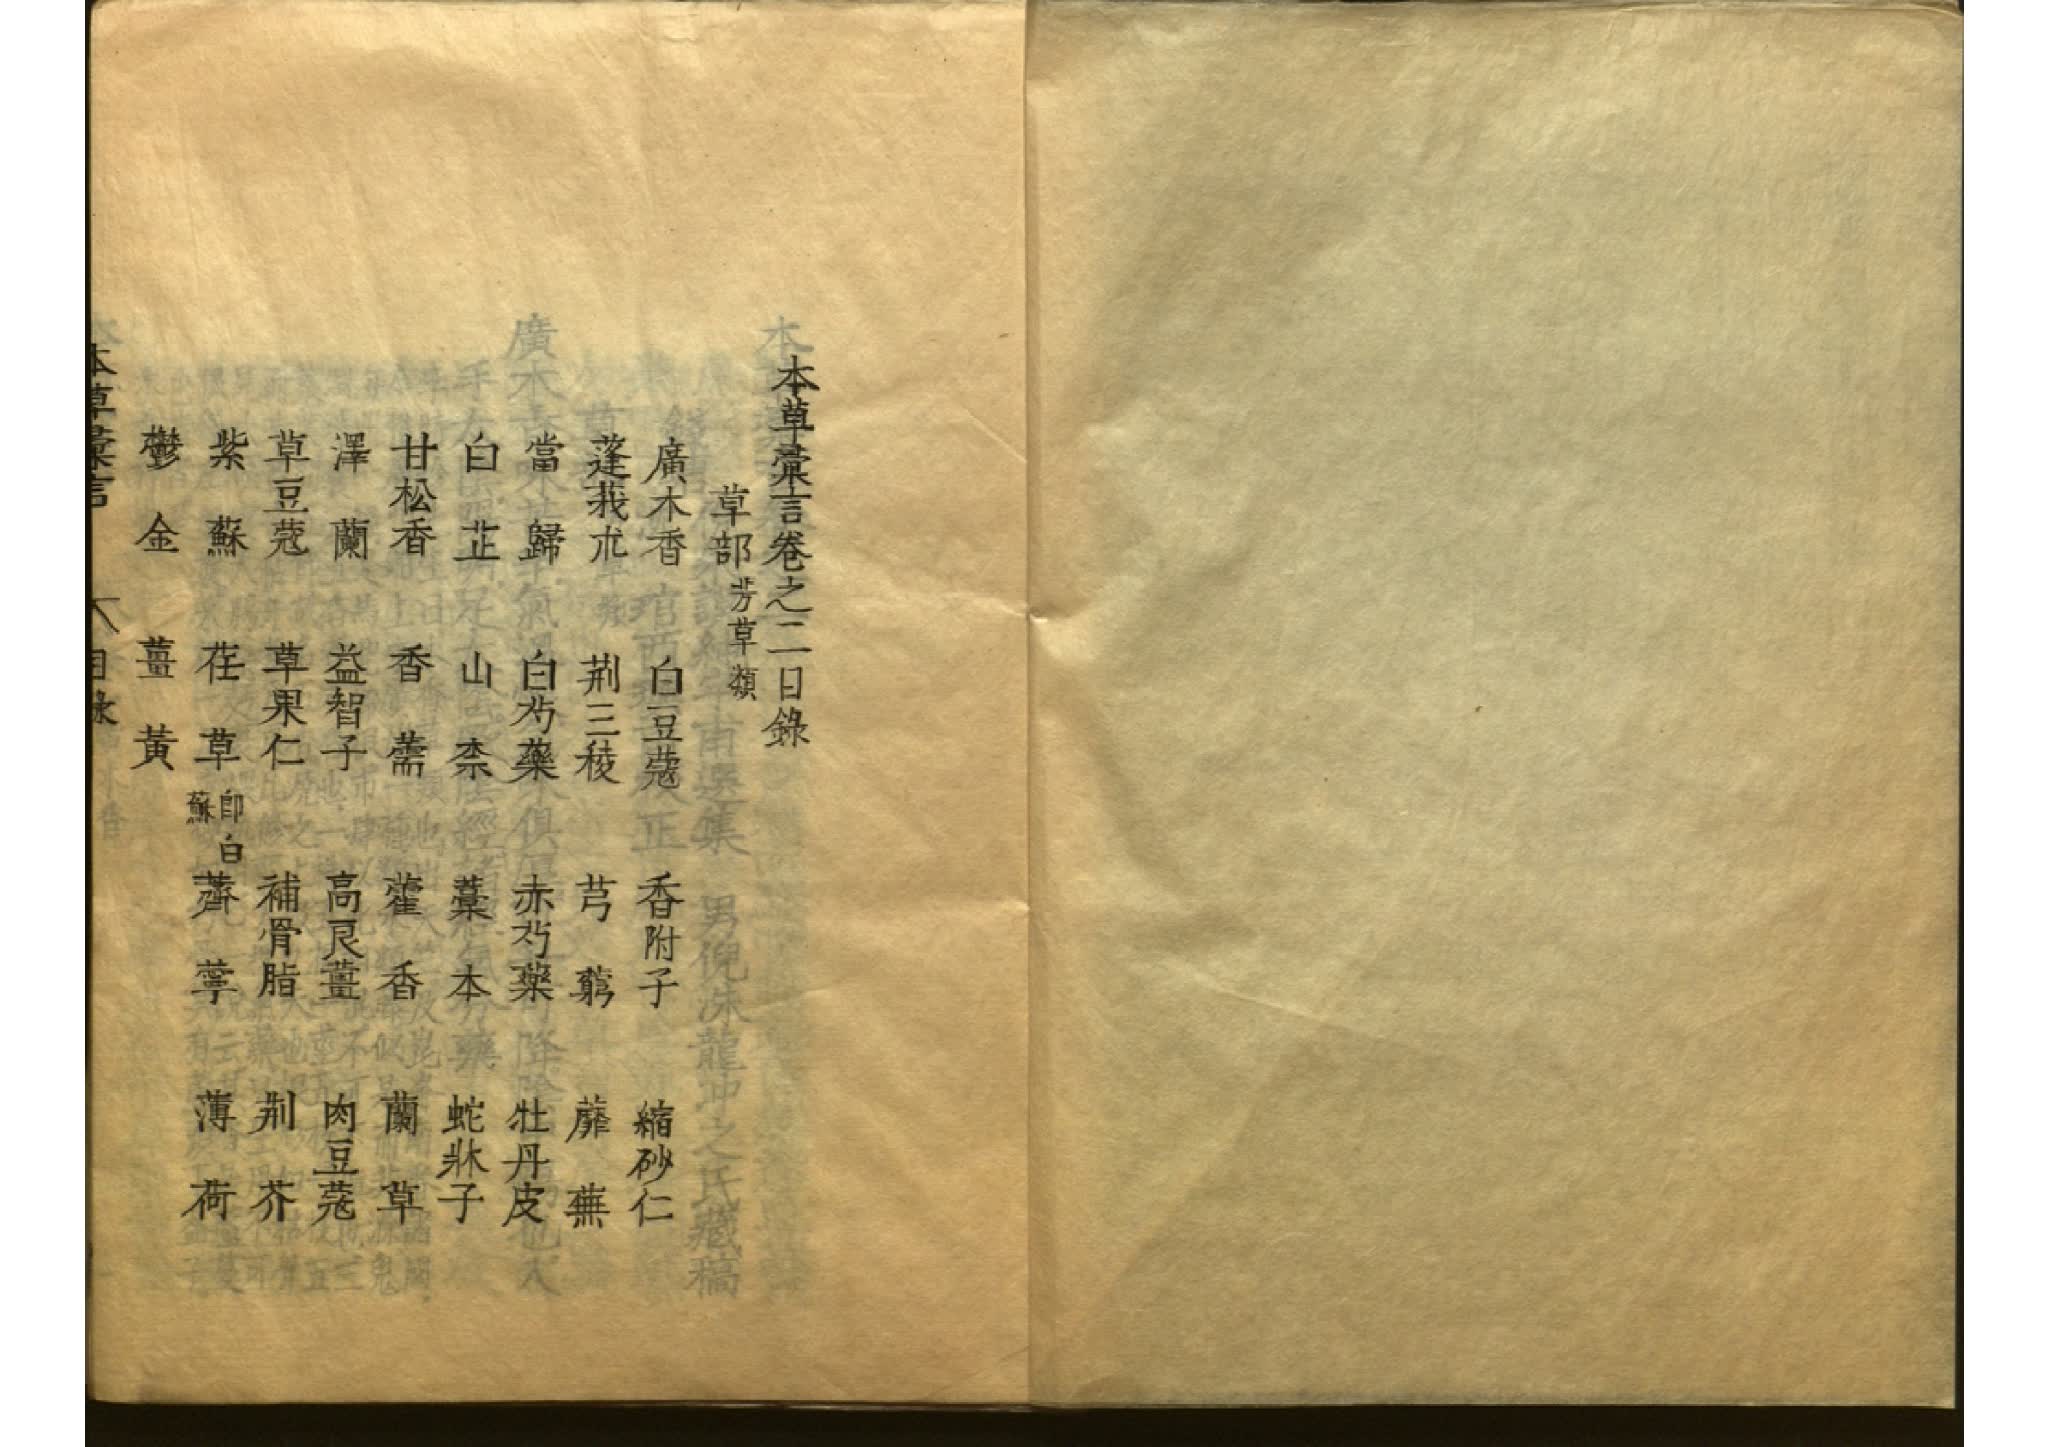 本草彚言卷之二目錄
草部 芳草類
廣木香 白豆蔻 香附子 縮砂仁
蓬莪朮 荆三稜 芎藭 蘼蕪
當歸 白芍藥 赤芍藥 牡丹皮
白芷 山柰 藁本 蛇牀子
甘松香 香薷 藿香 蘭草
澤蘭 益智子 高良薑 肉豆蔻
草豆蔻 草果仁 補骨脂 荆芥
紫蘇 荏草 卽白蘇 薺薴 薄荷
鬱金 薑黃
本草彚言 目錄